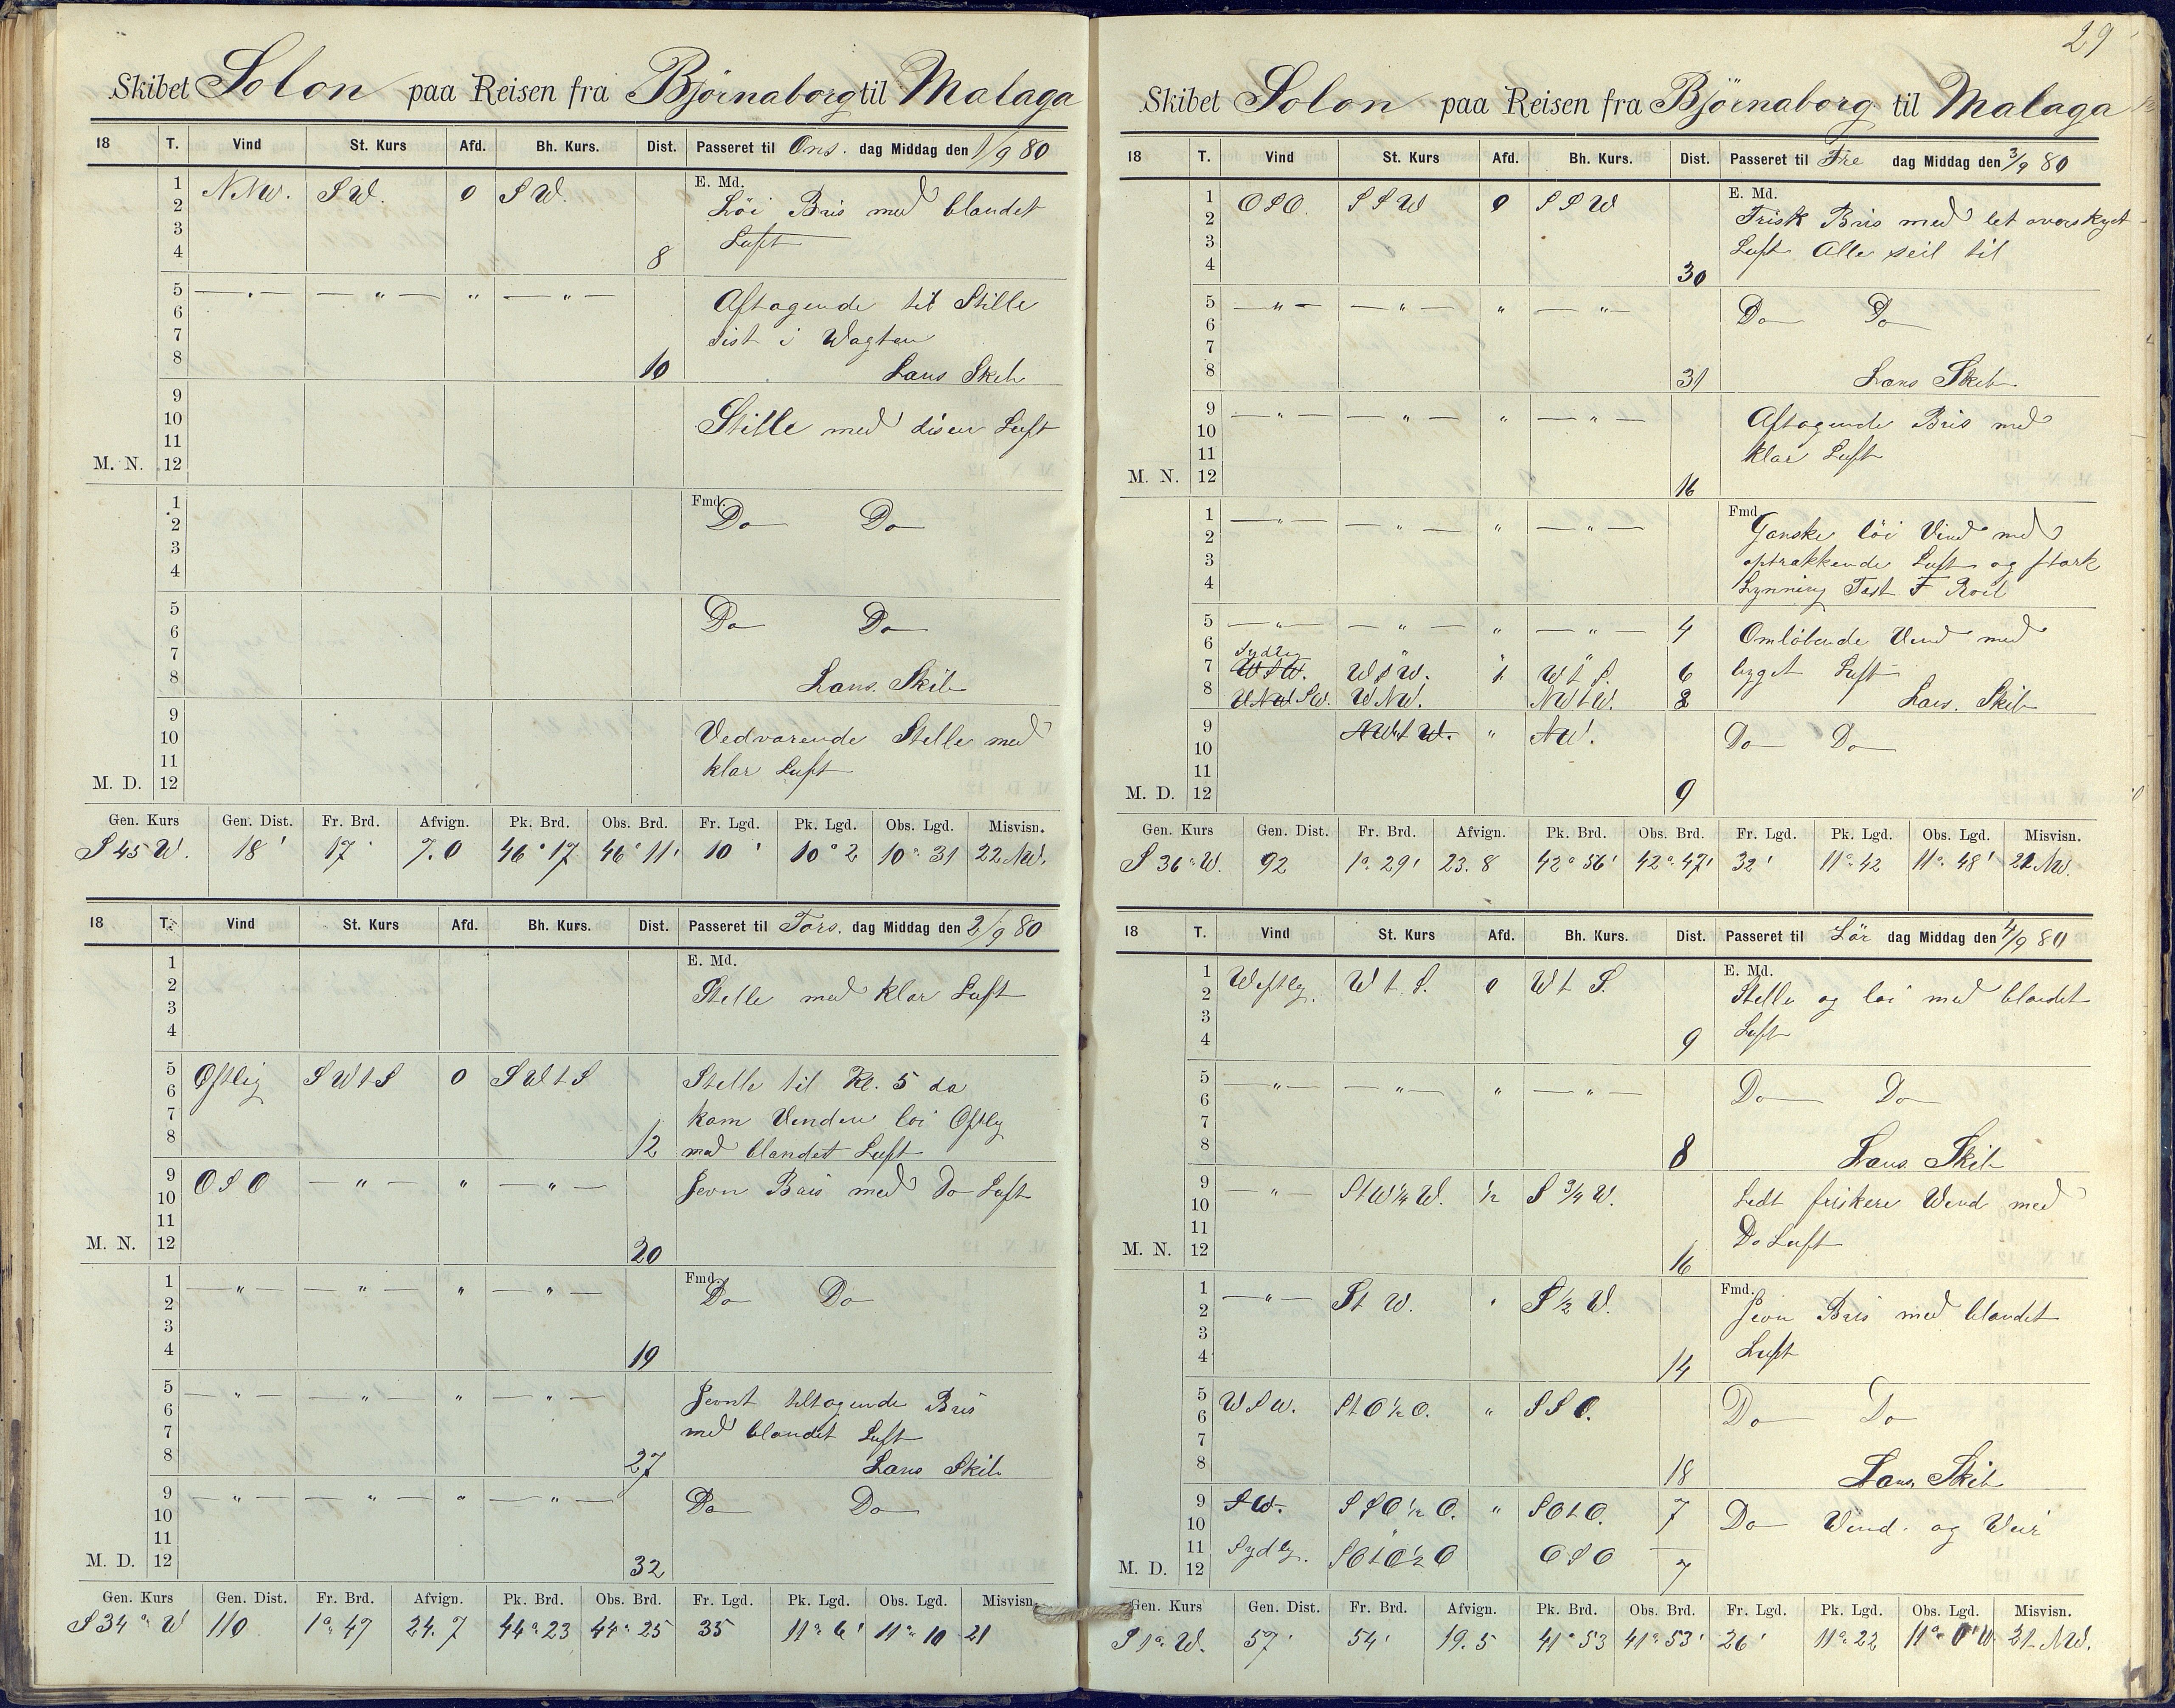 Skibet Solon paa Reisen fra Björnaborg til Malaga
18 T. Vind St. Kurs Afd. Bh. Kurs. Dist. Passeret til Ons. dag Middag den 1/9 80
1 NNW. SW. 0 SW. E. Md.
2 Löi Bris med blandet
3 Luft
4 8
5 — " — — " — " — " — Aftagende til Stille
6 sist i Wagten
7
8 10 Lans Skib
9
10 Stille med disen Luft
11
M. N. 12
1 Fmd.
2 Do Do
3
4
5
6 Do Do
7
8 Lans. Skib
9
10 Vedvarende Stille med
11 klar Luft
M. D. 12
Gen. Kurs Gen. Dist. Fr. Brd. Afvign. Pk. Brd. Obs. Brd. Fr. Lgd. Pk. Lgd. Obs. Lgd. Misvisn.
S 45 W. 18' 17' 7.0 46° 17 46° 11' 10' 10° 2 10° 31 22 NW.
18 T. Vind St. Kurs Afd. Bh. Kurs. Dist. Passeret til Tors. dag Middag den 2/9 80
1 E. Md.
2 Stille med klar Luft
3
4
5 Østlig SWtS 0 SWtS Stille til Kl. 5 da
6 kom Vinden löi Østlig
7
8 12 med blandet Luft
9 OSO — " — " — " — Jevn Bris med Do Luft
10
11
M. N. 12 20
1 — " — — " — " — " — Fmd.
2 Do Do
3
4 19
5 — " — — " — " — " — Jevnt tiltagende Bris
6 med blandet Luft
7
8 27 Lans Skib
9 — " — — " — " — " — Do Do
10
11
M. D. 12 32
Gen. Kurs Gen. Dist. Fr. Brd. Afvign. Pk. Brd. Obs. Brd. Fr. Lgd. Pk. Lgd. Obs. Lgd. Misvisn.
S 34° W 110 1° 47 24.7 44° 23 44° 25 35 11° 6' 11° 10 21
29
Skibet Solon paa Reisen fra Björnaborg til Malaga
18 T. Vind St. Kurs Afd. Bh. Kurs. Dist. Passeret til Fre dag Middag den 3/9 80
1 OSO. SSW 0 SSW E. Md.
2 Frisk Bris med let overskyet
3 Luft Alle seil til
4 30
5 — " — — " — " — " — Do Do
6
7
8 31 Lans Skib
9 — " — — " — " — " — Aftagende Bris med
10
11 klar Luft
M. N. 12 16
1 — " — — " — " — " — Fmd.
2 Ganske löi Vind med
3 optrækkende Luft og stark
4 Lynning Fast F Roil
5 — " — — " — " — " — 4 Omlöbende Vind med
6 Sydlig
7 WSW. WSW. WtS. 6 byget Luft
8 SW. WNW. NWtW. 8 Lans. Skib
9 NWtW. " NW. Do Do
10
11
M. D. 12 9
Gen. Kurs Gen. Dist. Fr. Brd. Afvign. Pk. Brd. Obs. Brd. Fr. Lgd. Pk. Lgd. Obs. Lgd. Misvisn.
S 36° W. 92 1° 29' 23.8 42° 56' 42° 47' 32' 11° 42 11° 48' 21 NW.
18 T. Vind St. Kurs Afd. Bh. Kurs. Dist. Passeret til Lör dag Middag den 4/9 80
1 Westlig. WtS. 0 WtS. E. Md.
2 Stille og löi med blandet
3 Luft
4 9
5 — " — — " — " — " — Do Do
6
7
8 8 Lans. Skib
9 — " — StW 1/4 W. 1/2 S 3/4 W. Lidt friskere Wind med
10
11 Do Luft
M. N. 12 16
1 — " — StW. " S 1/2 W. Fmd.
2 Jevn Bris med blandet
3 Luft
4 14
5 WSW. StO 1/2 O. " SSO. Do Do
6
7
8 18 Lans. Skib
9 SW. SSO 1/2 O. " SOtO. 7 Do Wind og Veir
10
11 Sydlig. SOtO 1/2 O OSO
M. D. 12 7
Gen. Kurs Gen. Dist. Fr. Brd. Afvign. Pk. Brd. Obs. Brd. Fr. Lgd. Pk. Lgd. Obs. Lgd. Misvisn.
S 1° W. 57' 54' 19.5 41° 53 41° 53' 26' 11° 22 11° 0' W. 21 NW.